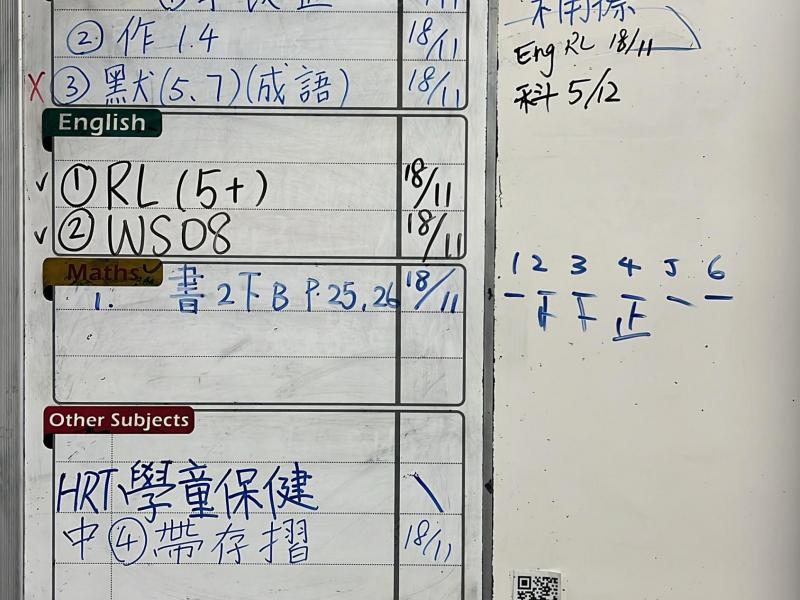 ② 作 1.4 18/11
X ③ 默犬(5、7)(成語) 18/11
English
✓ ① RL (5+) 18/11
✓ ② WS08 18/11
Maths ✓
1. 書2下B P.25,26 18/11
Other Subjects
HRT、學童保健 \
中④帶存摺 18/11
Eng RL 18/11
科 5/12
1 2 3 4 5 6